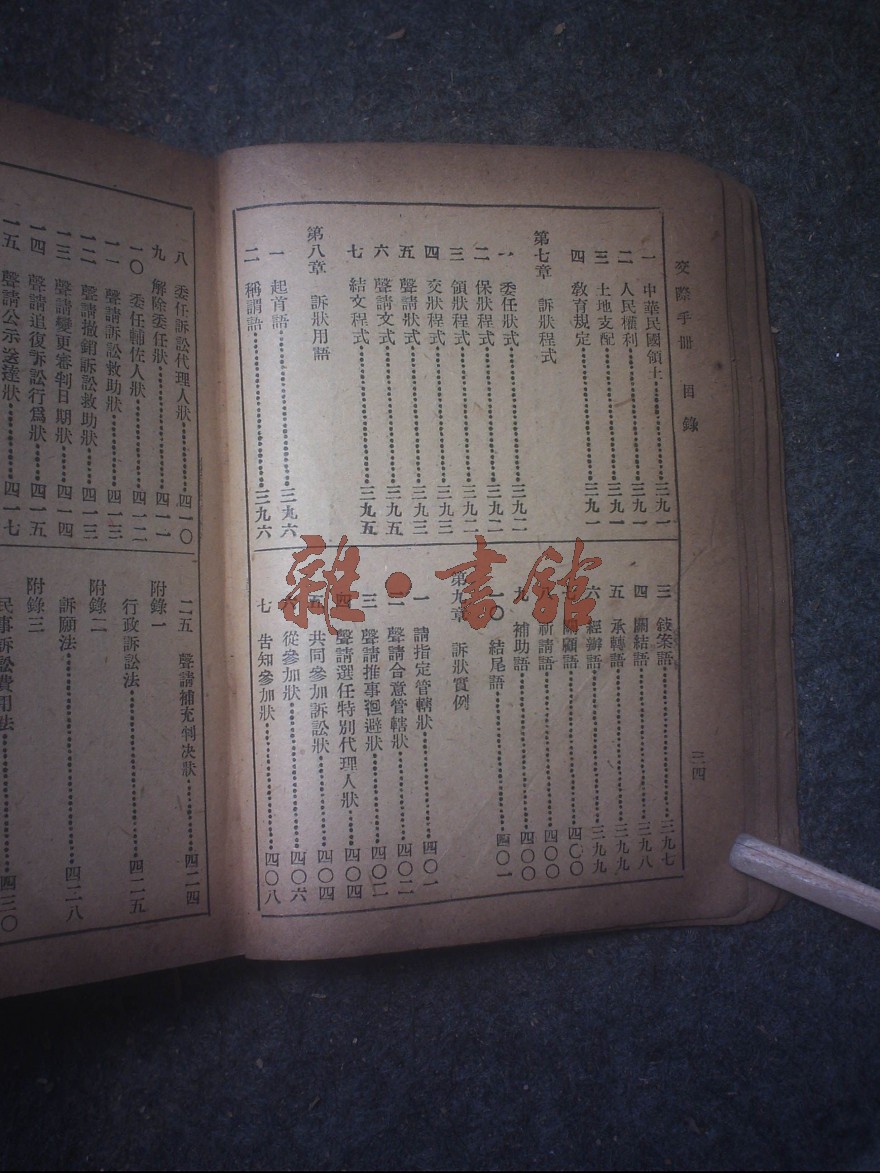 交際手冊　目錄
三四
一　中華民國領土……三九一
二　人民權利……三九一
三　土地支配……三九一
四　敎育規定……三九一
第七章　訴狀程式
一　委任狀式……三九二
二　保狀程式……三九二
三　領狀程式……三九二
四　交狀程式……三九三
五　聲請狀式……三九三
六　聲請文式……三九五
七　結文程式……三九五
第八章　訴狀用語
一　起首語……三九六
二　稱謂語……三九六
三　敍案語……三九七
四　關結語……三九八
五　承轉語……三九九
六　經辦語……三九九
顧語……四〇〇
八　祈請語……四〇〇
九　補助語……四〇〇
一〇　結尾語……四〇一
第九章　訴狀實例
一　請指定管轄狀……四〇一
二　聲請合意管轄狀……四〇二
三　聲請推事迴避狀……四〇二
四　聲請選任特別代理人狀……四〇四
五　共同參加訴訟狀……四〇四
六　從參加狀……四〇六
七　告知參加狀……四〇八
八　委任訴訟代理人狀……四一〇
九　解除委任狀……四一一
一〇　委任輔佐人狀……四一二
一一　聲請訴訟救助狀……四一三
一二　聲請撤銷訴訟救助狀……四一三
一三　聲請變更審判日期狀……四一四
一四　聲請追復訴訟行爲狀……四一五
一五　聲請公示送達狀……四一七
二五　聲請補充判决狀……四二四
附錄一
行政訴訟法……四二五
附錄二
訴願法……四二八
附錄三
民事訴訟費用法……四三〇
雜·書館